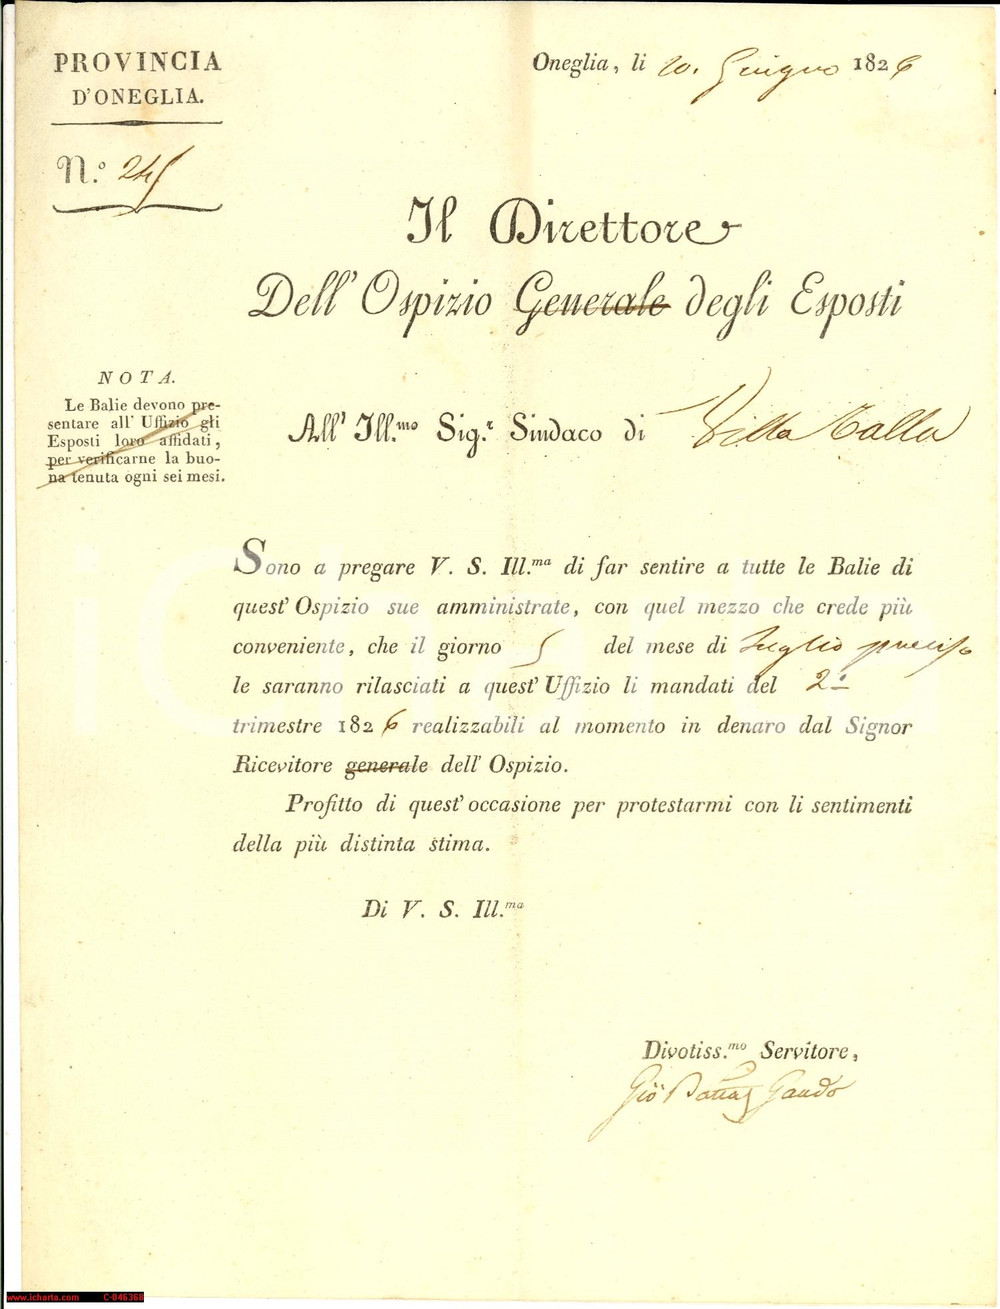 PROVINCIA
D'ONEGLIA.
N.º 245
Oneglia, li 20. Giugno 1826
Il Direttore
Dell' Ospizio Generale degli Esposti
NOTA.
Le Balie devono pre-
sentare all' Uffizio gli
Esposti loro affidati,
per verificarne la buo-
na tenuta ogni sei mesi.
All' Ill.mo Sig.r Sindaco di Villa Talla
Sono a pregare V. S. Ill.ma di far sentire a tutte le Balie di
quest' Ospizio sue amministrate, con quel mezzo che crede più
conveniente, che il giorno 5 del mese di Luglio
le saranno rilasciati a quest' Uffizio li mandati del 2º
trimestre 1826 realizzabili al momento in denaro dal Signor
Ricevitore generale dell' Ospizio.
Profitto di quest' occasione per protestarmi con li sentimenti
della più distinta stima.
Di V. S. Ill.ma
Divotiss.mo Servitore,
Gio Batta Gandò
iCharta
www.icharta.com C-046368